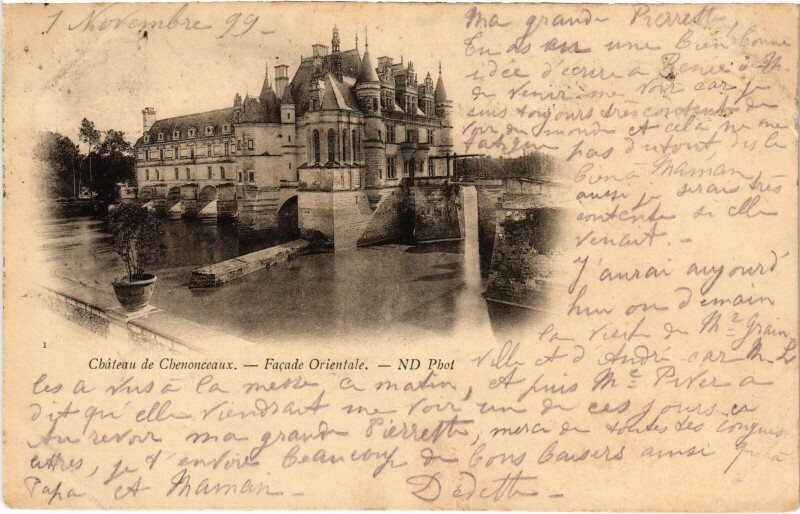 1 Novembre 99 -
Ma grande Pierrette,
Tu as eu une bien bonne
idée d'écrire à
de venir me voir car je
suis toujours très contente de
voir du monde et cela ne me
fatigue pas du tout, dis le
bien à Maman,
aussi je serais très
contente si elle
venait. -
J'aurai aujourd'
hui ou demain
la visite de Mr Grain
ville et d'André car M. L
les a vus à la messe ce matin, et puis Me Piver a
dit qu'elle viendrait me voir un de ces jours. ca
Au revoir ma grande Pierrette, merci de toutes tes longues
lettres, je t'envoie beaucoup de bons baisers ainsi qu'à
Papa et Maman - Dédette -
1
Château de Chenonceaux. — Façade Orientale. — ND Phot